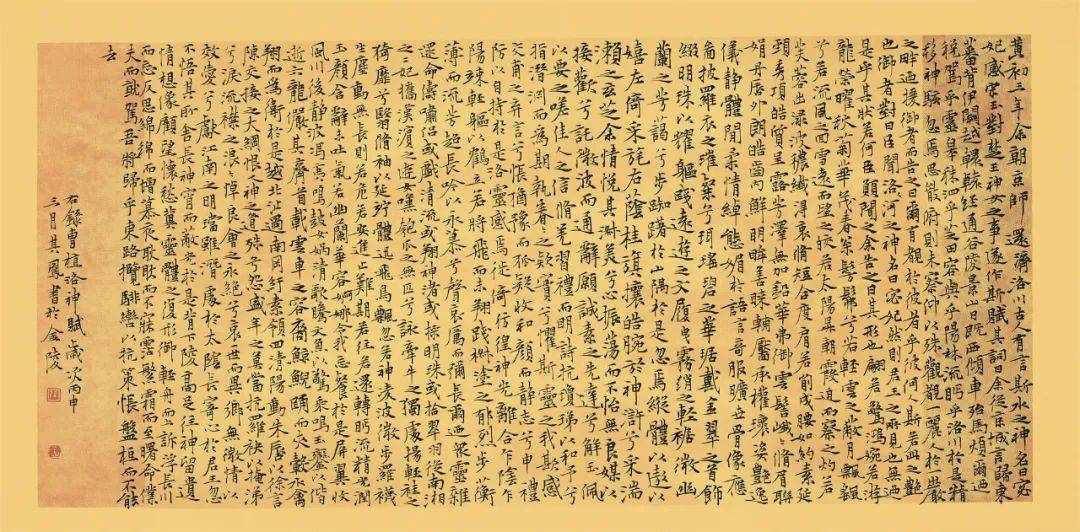 黄初三年余朝京師還濟洛川古人有言斯水之神名曰宓
妃感宋玉對楚王神女之事遂作斯賦其詞曰余從京域言歸東
藩背伊闕越轘轅經通谷陵景山日既西傾車殆馬煩爾迺
稅駕乎蘅皋秣駟乎芝田容與乎陽林流眄乎洛川於是精
移神駭忽焉思散俯則未察仰以殊觀覩一麗人於巖
之畔迺援御者而告之曰爾有覿於彼者乎彼何人斯若此之艷
也御者對曰臣聞河洛之神名曰宓妃然則君王之所見也無迺
是乎其狀若何臣願聞之余告之曰其形也翩若驚鴻婉若游
龍榮曜秋菊華茂春松髣髴兮若輕雲之蔽月飄飖
兮若流風之回雪遠而望之皎若太陽升朝霞迫而察之灼若
芙蓉出淥波穠纖得衷脩短合度肩若削成腰如約素延
頸秀項皓質呈露芳澤無加鉛華弗御雲髻峨峨脩眉聯
娟丹唇外朗皓齒內鮮明眸善睞輔靨承權瓌姿艷逸
儀靜體閒柔情綽態媚於語言奇服曠世骨像應
圖披羅衣之璀粲兮珥瑤碧之華琚戴金翠之首飾
綴明珠以耀軀踐遠遊之文履曳霧綃之輕裾微幽
蘭之芳藹兮步踟躕於山隅於是忽焉縱體以遨以
嬉左倚采旄右蔭桂旗攘皓腕於神滸兮采湍
瀨之玄芝余情悅其淑美兮心振蕩而不怡無良媒以
接歡兮託微波而通辭願誠素之先達兮解玉佩
以要之嗟佳人之信脩羌習禮而明詩抗瓊珶以和予兮
指潛淵而為期執眷眷之款實兮懼斯靈之我欺感
交甫之弃言兮悵猶豫而狐疑收和顏而靜志兮申禮
防以自持於是洛靈感焉徙倚彷徨神光離合乍陰乍
陽竦輕軀以鶴立若將飛而未翔踐椒塗之郁烈步蘅
薄而流芳超長吟以永慕兮聲哀厲而彌長爾迺衆靈雜
遝命儔嘯侶或戲清流或翔神渚或採明珠或拾翠羽從南湘
之二妃攜漢濱之遊女嘆匏瓜之無匹兮詠牽牛之獨處揚輕袿之
猗靡兮翳脩袖以延佇體迅飛鳧飄忽若神凌波微步羅襪
生塵動無常則若危若安進止難期若往若還轉眄流精光潤
玉顏含辭未吐氣若幽蘭華容婀娜令我忘餐於是屏翳收
風川後靜波馮夷鳴鼓女媧清歌騰文魚以警乘鳴玉鑾以偕
逝六龍儼其齊首載雲車之容裔鯨鯢踊而夾轂水禽
翔而為衛於是越北沚過南岡紆素領回清陽動朱唇以徐言
陳交接之大綱恨人神之道殊兮怨盛年之莫當抗羅袂以掩涕
兮淚流襟之浪浪悼良會之永絕兮哀逝而異鄉無微情以
效愛兮獻江南之明璫雖潛處於太陰長寄心於君王忽
不悟其所舍悵神宵而蔽光於是背下陵高足往神留遺
情想像顧望懷愁冀靈體之復形御輕舟而上泝浮長川
而忘反思綿綿而增慕夜耿耿而不寐霑繁霜而至曙命僕
夫而就駕吾將歸乎東路攬騑轡以抗策悵盤桓而不能
去
右錄曹植洛神賦歲次丙申
三月其鳳書於金陵